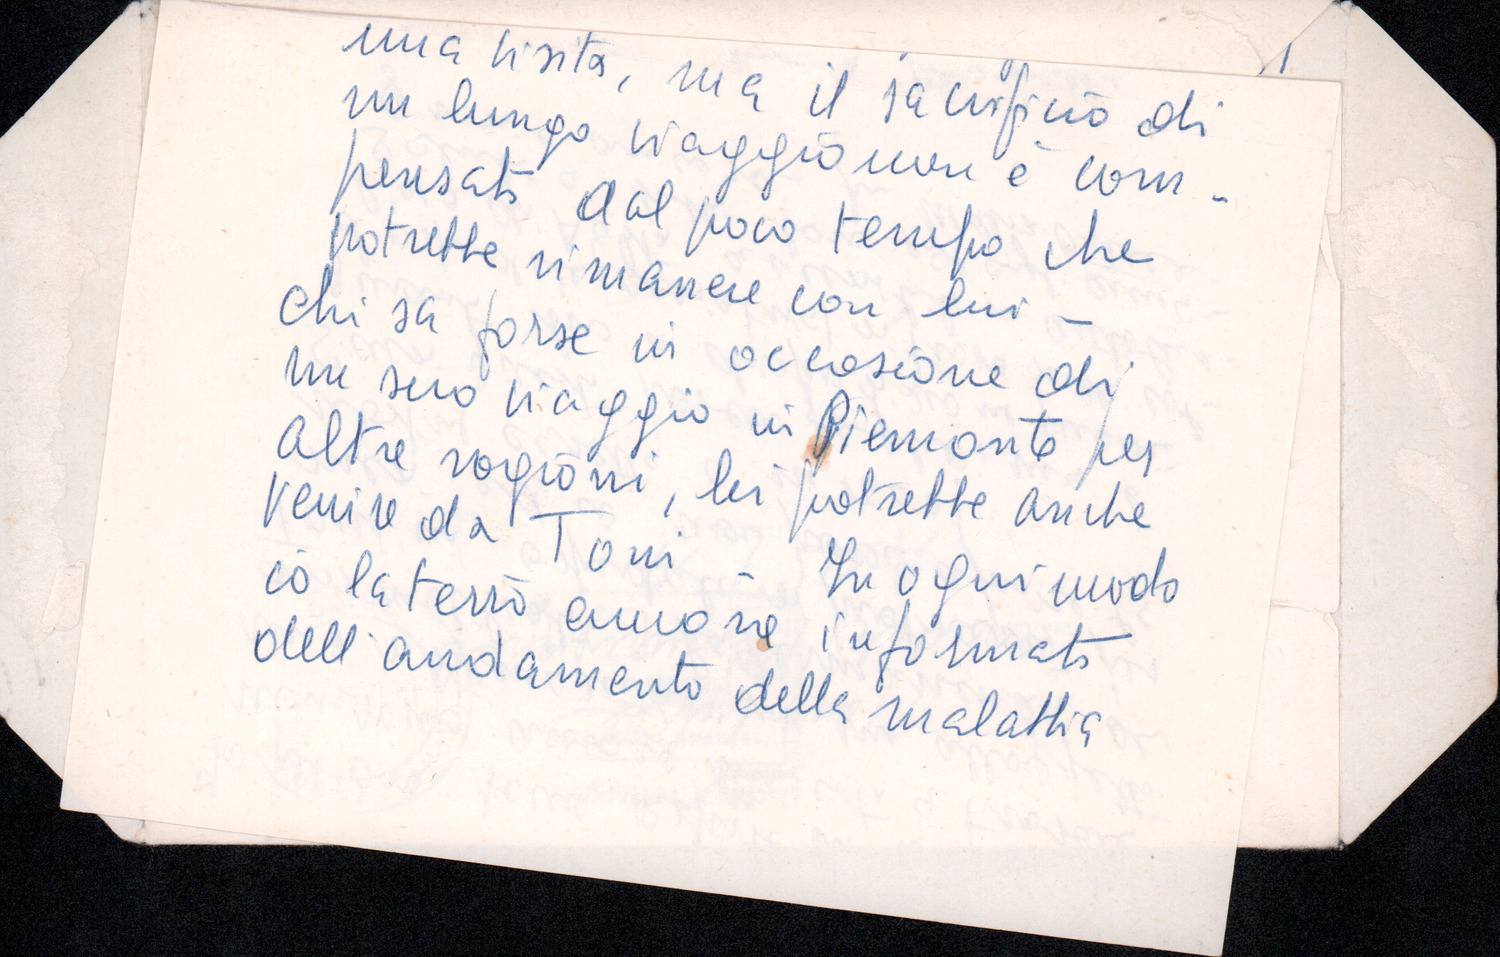 una visita, ma il sacrificio di
un lungo viaggio non è com-
pensato dal poco tempo che
potrebbe rimanere con lui -
chi sa forse in occasione di
un suo viaggio in Piemonte per
altre ragioni, lei potrebbe anche
venire da Toni - In ogni modo
io la terrò ancora informato
dell'andamento della malattia